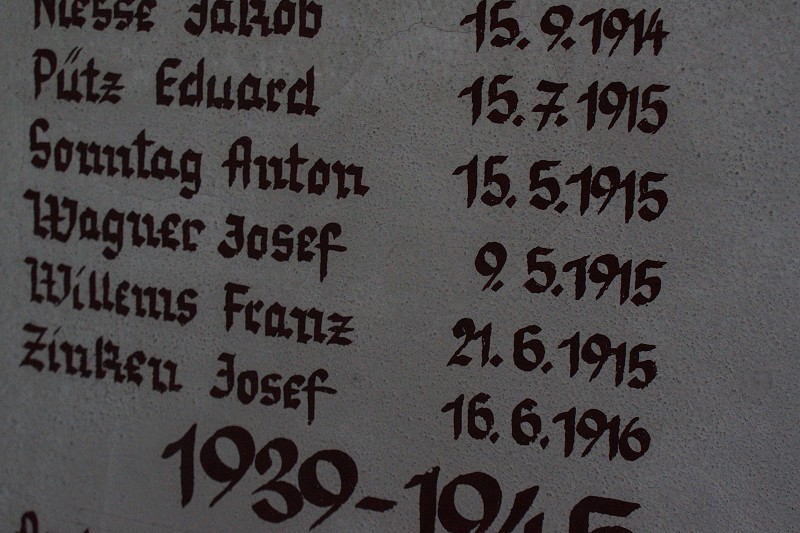 Niesse Jakob 15.9.1914
Pütz Eduard 15.7.1915
Sonntag Anton 15.5.1915
Wagner Josef 9.5.1915
Willems Franz 21.6.1915
Zinken Josef 16.6.1916
1939-1945